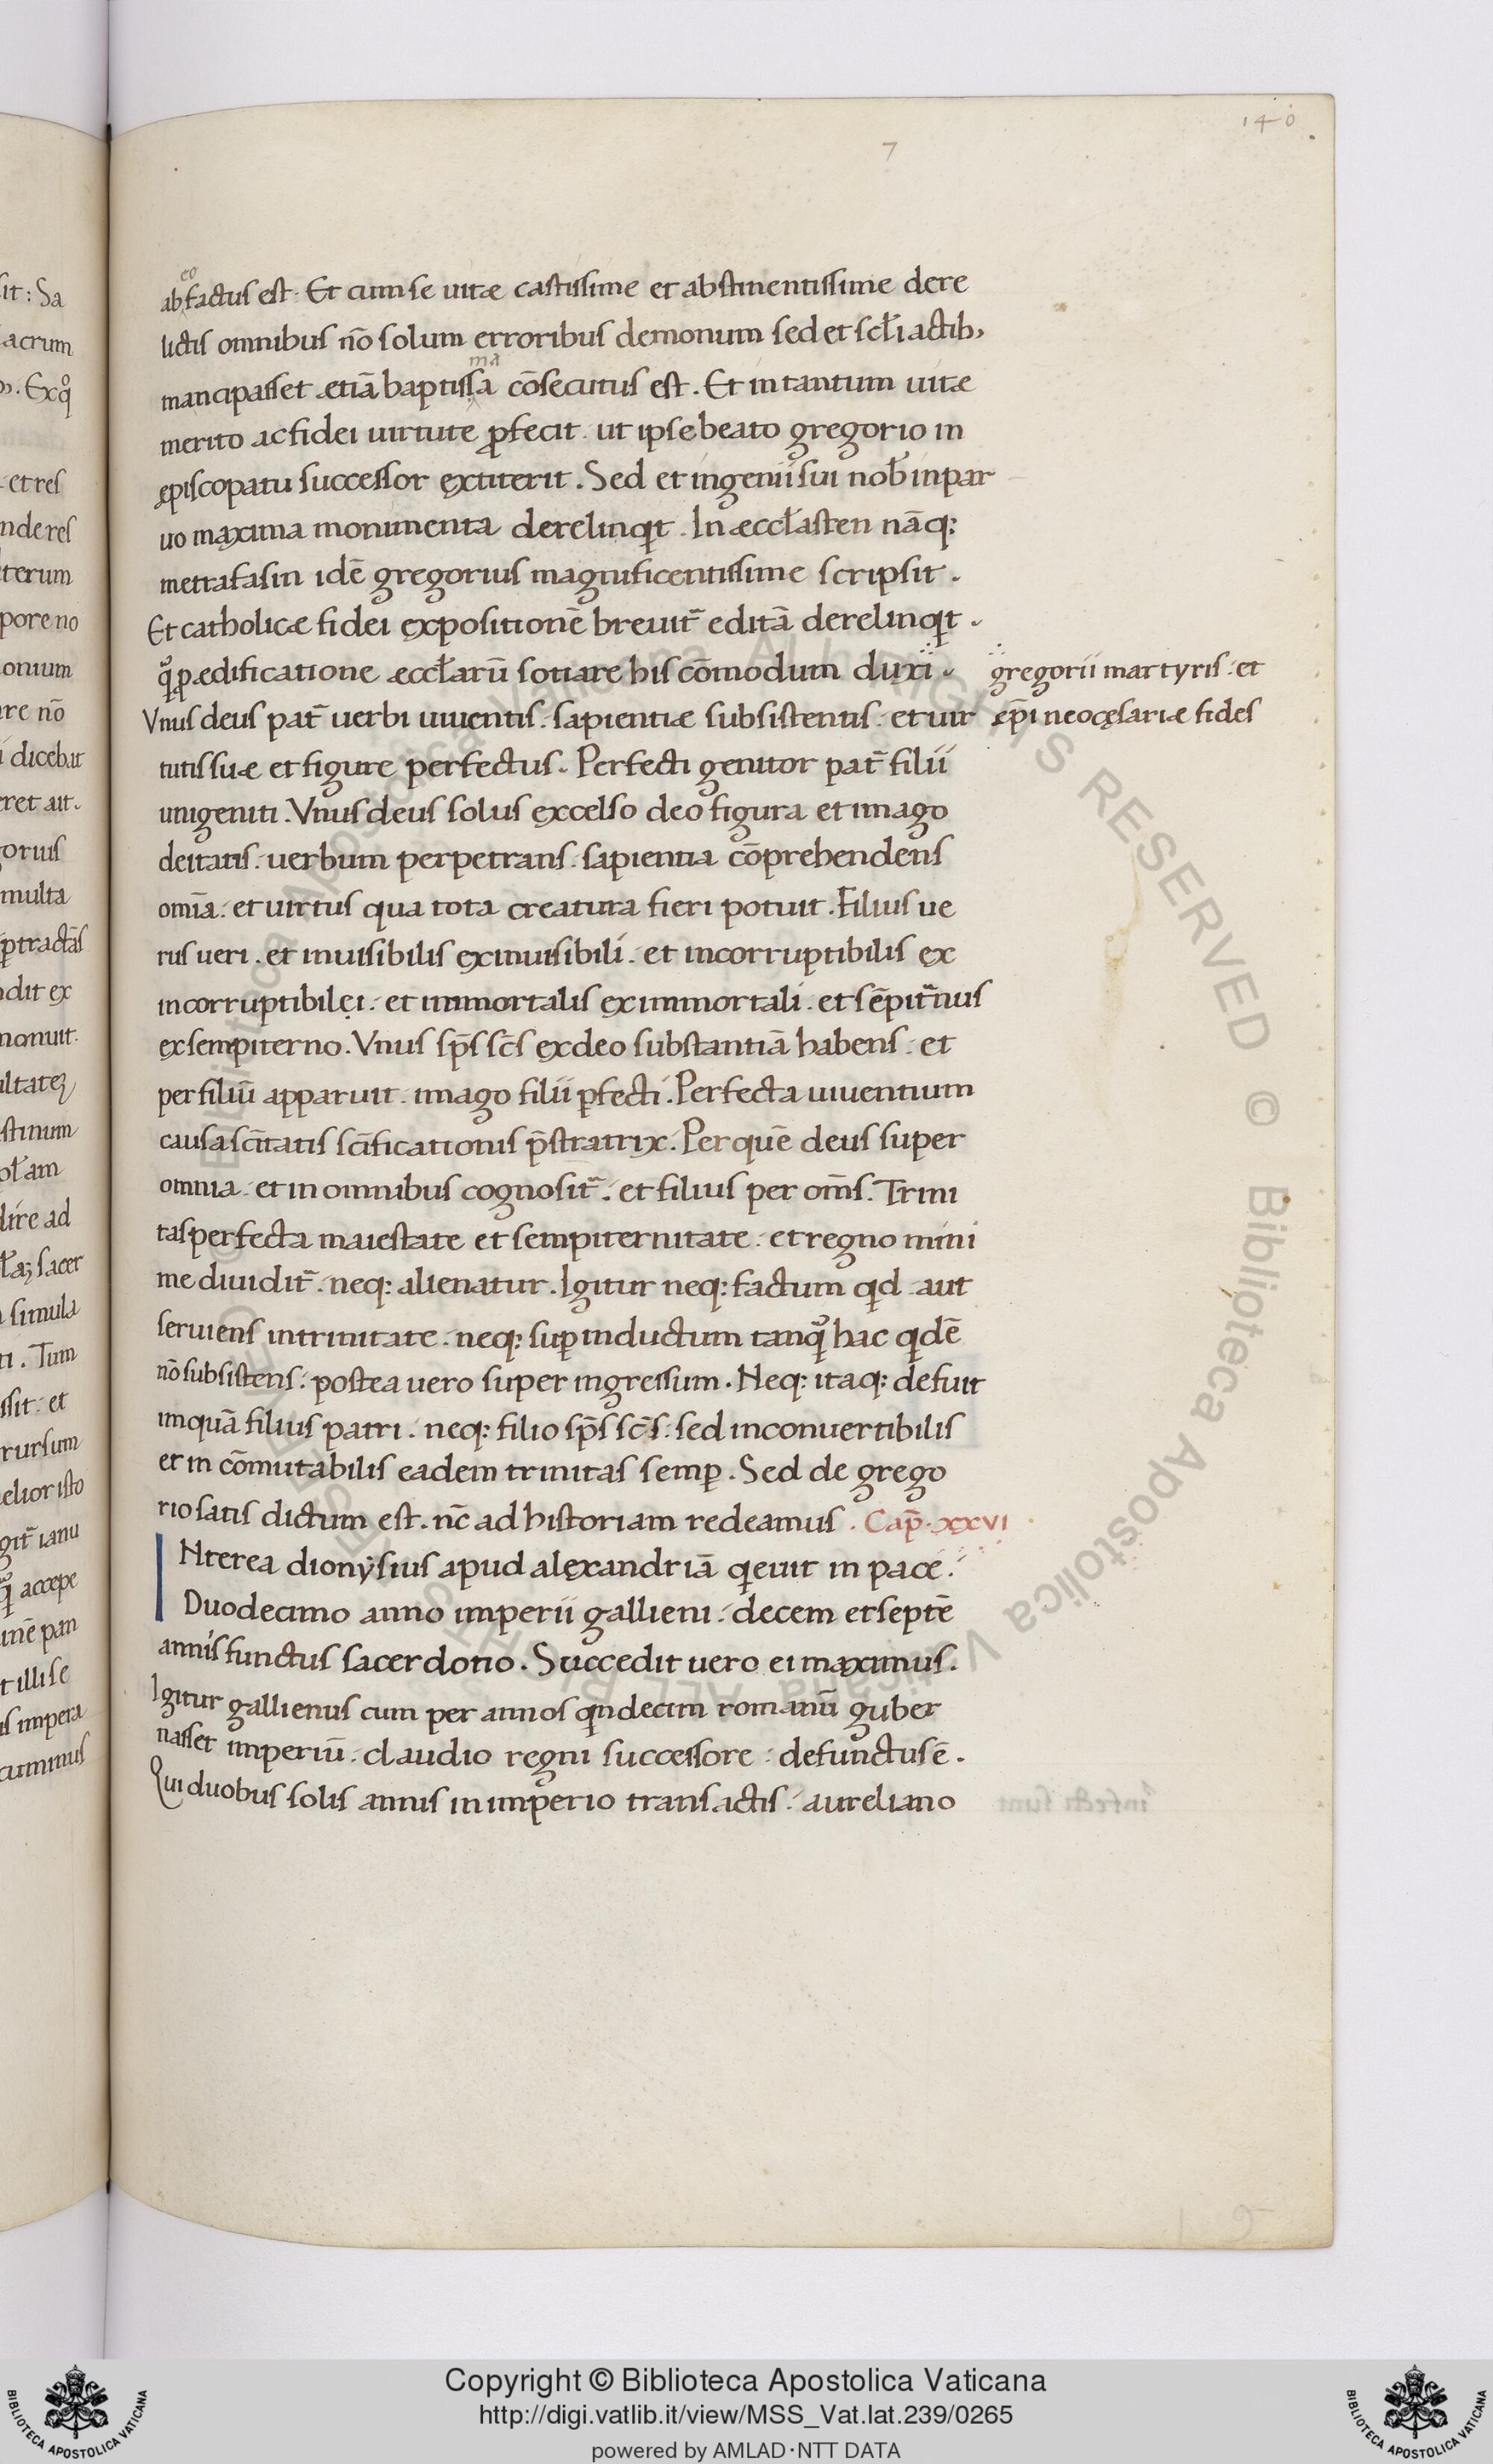 140
7
ab eo factus est. Et cum se uitæ castissime et abstinentissime dere
lictis omnibus nō solum erroribus demonum sed et scłi actib;
mancipasset ætiā baptissma cōsecutus est. Et in tantum uitæ
merito ac fidei uirtute ꝓfecit. ut ipse beato gregorio in
episcopatu successor extiterit. Sed et ingenii sui nob̄ in par
uo maxima monimenta derelinqͥt. In æccłasten nāq:
mettafasin idē gregorius magnificentissime scripsit.
Et catholicæ fidei expositionē breuit̄ editā derelinqͥt.
qͣ̊ ꝓ ædificatione æccłarū sotiare his cōmodum duxi.
gregorii martyris. et
ep̄i neocęsariæ fides
Vnus deus pat̄ uerbi uiuentis. sapientiæ subsistentis. et uir
tutis suæ et figure perfectus. Perfecti genitor pat̄ filii
unigeniti. Vnus deus solus excelso deo figura et imago
deitatis. uerbum perpetrans. sapientia cōprehendens
om̄ia. et uirtus qua tota creatura fieri potuit. Filius ue
rus ueri. et inuisibilis ex inuisibili. et incorruptibilis ex
incorruptibilei. et immortalis ex immortali. et sēpit̄nus
ex sempiterno. Vnus sp̄s sc̄s ex deo substantiā habens. et
per filiū apparuit. imago filii ꝑfecti. Perfecta uiuentium
causa sc̄itatis sc̄ificationis p̄stratrix. Per quē deus super
omnia. et in omnibus cognosit̄. et filius per om̄s. Trini
tas perfecta maiestate et sempiternitate. et regno mini
me diuidit̄. neq: alienatur. Igitur neq: factum qͥd aut
seruiens in trinitate. neq: suꝑinductum tanqͣ̄ hac qͥdē
nō subsistens. postea uero super ingressum. Neq: itaq: defuit
imquā filius patri. neq: filio sp̄s sc̄s. sed inconuertibilis
et in cōmutabilis eadem trinitas semꝑ. Sed de grego
rio satis dictum est. nc̄ ad historiam redeamus. Cap̄. xxvi
INterea dionysius apud alexandriā qͥeuit in pace.
Duodecimo anno imperii gallieni. decem et septē
annis functus sacerdotio. Succedit uero ei maximus.
Igitur gallienus cum per annos qͥndecim romanū guber
nasset imperiū. claudio regni successore. defunctus ē.
Qui duobus solis annis in imperio transactis. aureliano
Copyright © Biblioteca Apostolica Vaticana
http://digi.vatlib.it/view/MSS_Vat.lat.239/0265
powered by AMLAD·NTT DATA